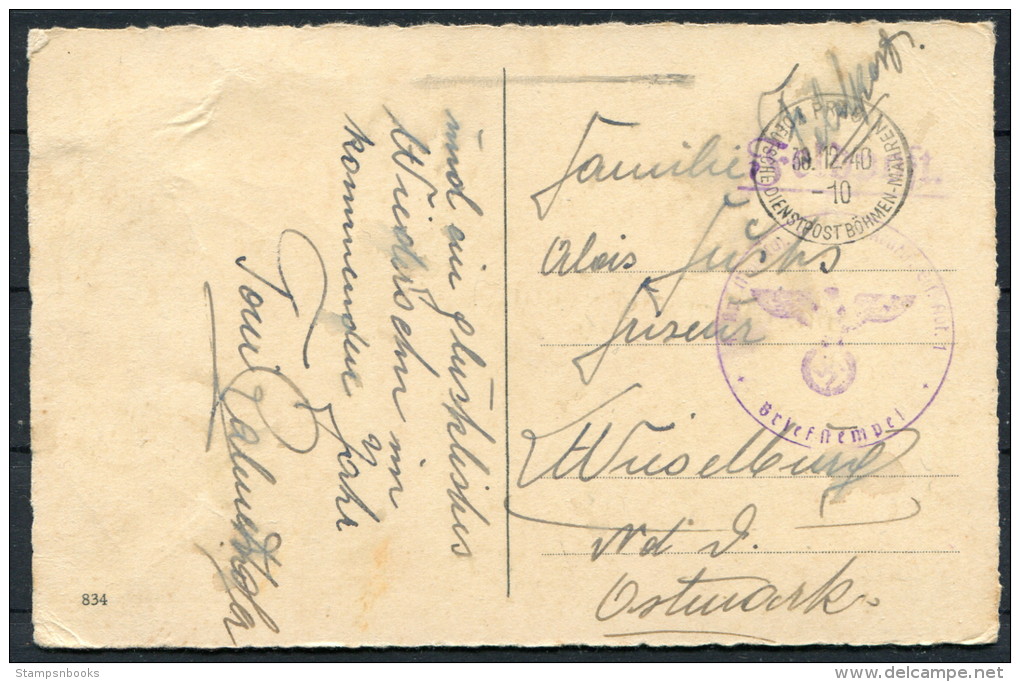 und ein glückliches
Wiedersehn im
kommenden Jahr
Toni
834
Feldpost.
Feldpost.
PRAG
30.12.40
-10
DEUTSCHE DIENSTPOST BÖHMEN-MÄHREN
Familie
Alois Fuchs
Friseur
Wieselburg
Nd D.
Ostmark.
Briefstempel
Stampsnbooks
delcampe.net